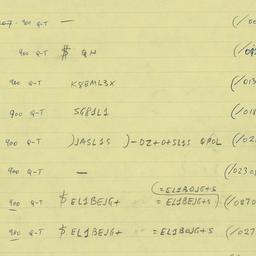 007- 900 Q-T —
900 Q-T $ QN
900 Q-T K8EML3X (/013
900 Q-T SG81L1 (/018
900 Q-T )JASL1S )-DZ+O+SL1S QPOL (/02
900 Q-T — (/023
(=EL1BOJG+S
900 Q-T $ EL1BEJG+ = EL1BEJG+S) (/0270
900 Q-T $ EL1BEJG+ = EL1BEJG+S (/027